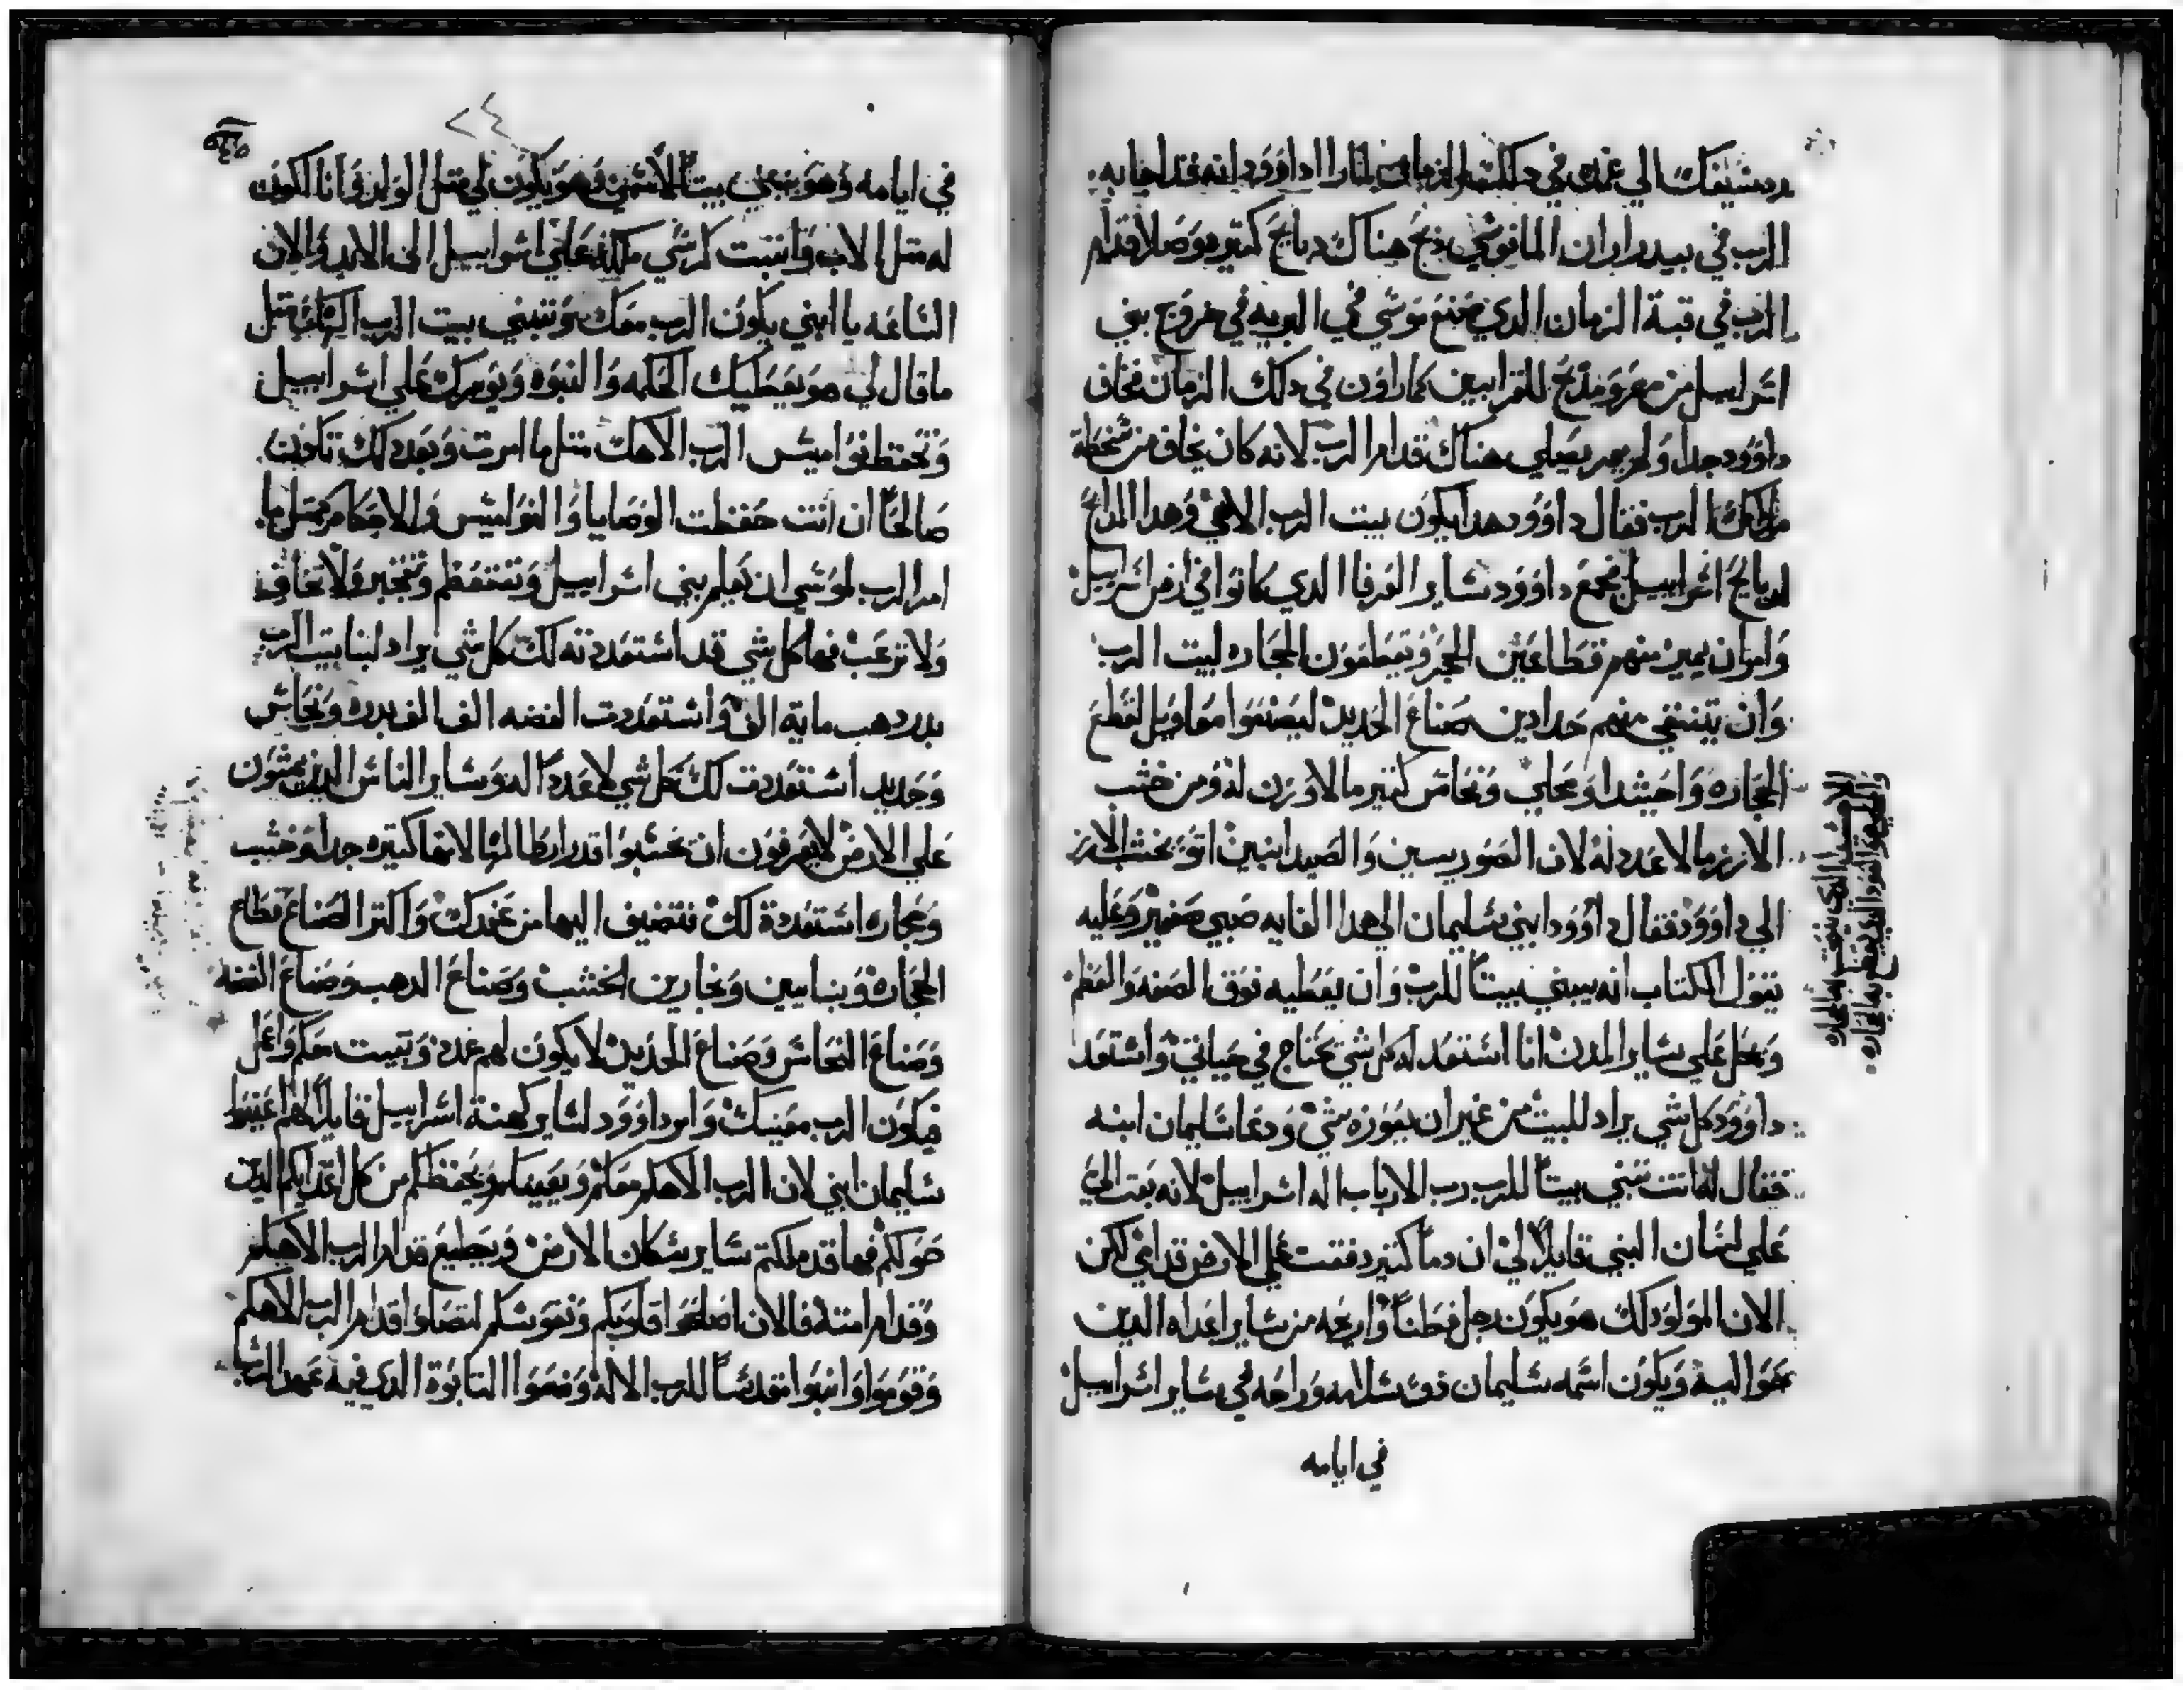 رد سيفك الي غمده في دلك الزمان لما راا داوود انه قد اجابه
الرب في بيدر اران اليانوسي دبح هناك دبايح كتير وصلا قدام
الرب في قبة الزمان الدي صنع موسي في البريه في خروج بني
اسراييل من مصر ومدبح للقرابين كما راون في دلك الزمان فخاف
داوود جدا ولم يعد يصلي هناك قدام الرب لانه كان يخاف من سخطة
ملاك الرب فقال داوود هدا يكون بيت الرب الالهي وهدا المدبح
لدبايح اسراييل فجمع داوود ساير الغربا الدي كانوا في ارض اسراييل
وامر ان يميز منهم قطاعين الحجر وتقطعون الحجاره لبيت الرب
وان ينتقي منهم حدادين صناع الحديد ليصنعوا معاويل لقطع
الحجاره واحسدا وعجلي ونحاس كتير ما لا وزن له ومن خشب
الارز ما لا عدد له لان الصوريسين والصيدانيين اتو بخشب الارز
الي داوود فقال داوود ابني سليمان الي هدا الغايه صبي صغير وعليه
يتول الكتاب انه يبني بيتا للرب وان يعطيه فوق الصفه والعظم
وبعل علي ساير المدن انا استعد له كل شي يحتاج في حياتي واستعد
داوود كل شي يراد للبيت من غير ان يعوزه شي ودعا سليمان ابنه
فقال له انت تبني بيتا للرب رب الارباب اله اسراييل لانه بعت الي
علي لسان النبي قايلا لي ان دما كتير دفقت علي الارض قدامي لكن
الان المولود لك هو يكون رجل فطنا واريحه من ساير اعداه الدين
حواليه ويكون اسمه سليمان دو سلامه وراحه في ساير اسراييل
في ايامه
في ايامه وهو يبني بيتا لاسمي وهو يكون لي متل الولد وانا اكون
له متل الاب واتبت كرسي ملكه علي اسراييل الي الابد والان
الساعه يا ابني يكون الرب معك وتبني بيت الرب الهك متل
ما قال لي هو يعطيك الحكمه والنبوه ويومرك علي اسراييل
وتحفظ نواميس الرب الاهك متل ما امرت وبعد دلك تكون
صالحا ان انت حفظت الوصايا والنواميس والاحكام كمتل ما
امر الرب لموسي ان تعلم بني اسراييل وتتعظم وتتجبر ولا تخاف
ولا ترعب فها كل شي قد استعددته لك كل شي يراد لبنا بيت الرب
بدر دهب ماية الف واستعددت الفضه الف الف بدره ونحاس
وحديد استعددت لك كل شي لا عددا له وساير الناس الدين يمشون
علي الارض لا يعرفون ان يحسبوا قدر ارطالها لانها كتيره جدا وخشب
وحجاره استعددة لك فتضيف اليها من عندك واكتر الصناع قطاع
الحجاره وبنايين ونجارين الخشب وصناع الدهب وصناع الفضه
وصناع النحاس وصناع الحديد لا يكون لهم عدد وتبيت معكم واعمل
فيكون الرب معينك وامر داوود لساير كهنة اسراييل قايلا لهم اعينوا
سليمان ابني لان الرب الاهكم معكم ويعينكم ويحفظكم من كل اعدايكم الدين
حولكم فها قد ملكتم ساير سكان الارض ويطيع قدام الرب الاهكم
وقدام امته فالان اصلحوا قلوبكم ونفوسكم لتصلوا قدام الرب الاهكم
وقوموا وابنوا مقدسا للرب الاله وضعوا التابوة الدي فيه عهد الرب